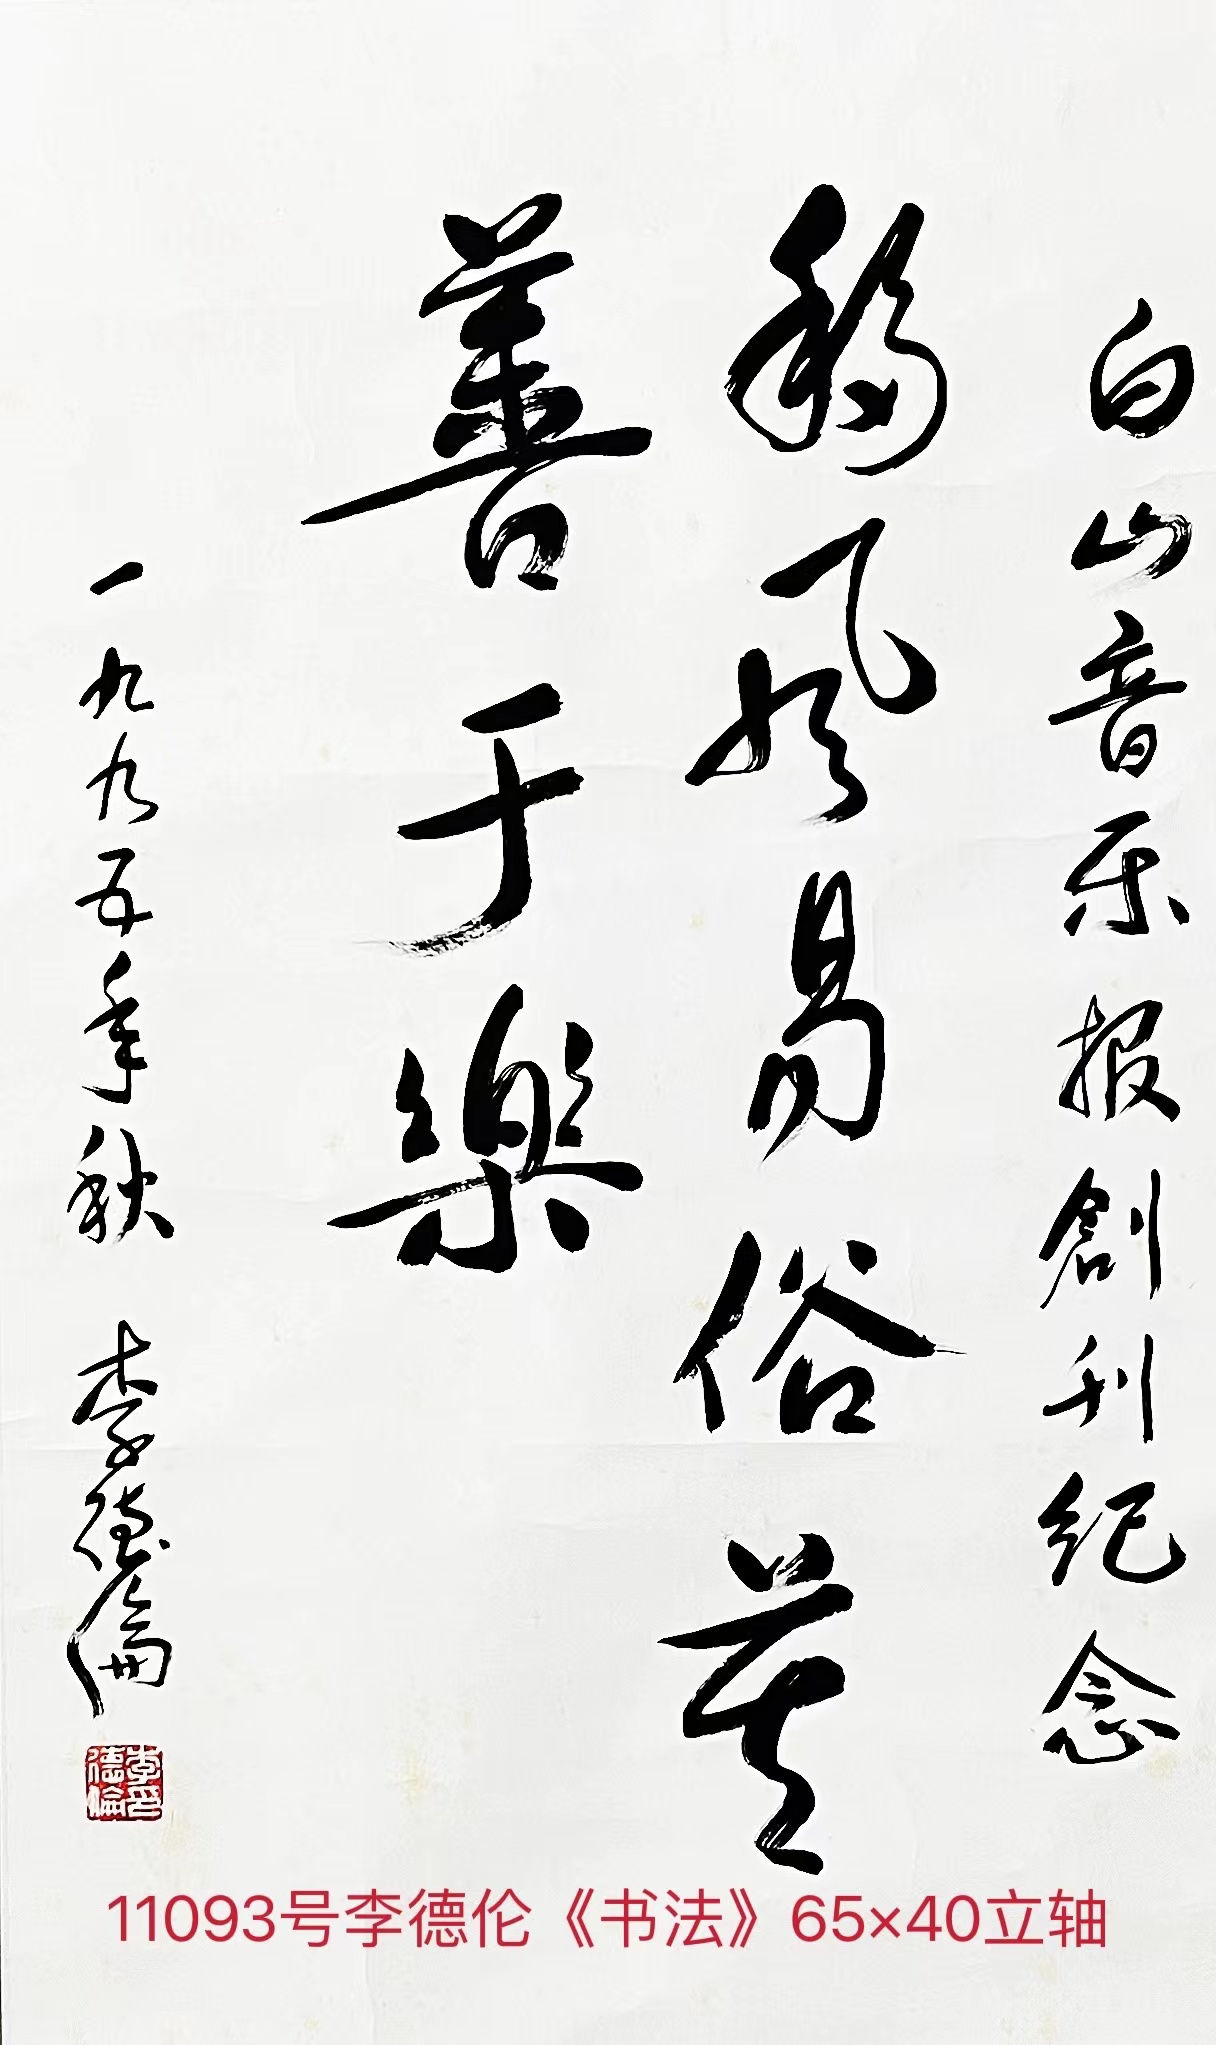 白山音乐报創刊纪念
移风易俗莫
善于樂
一九九五年秋 李德倫
李德倫印
11093号李德伦《书法》65×40立轴